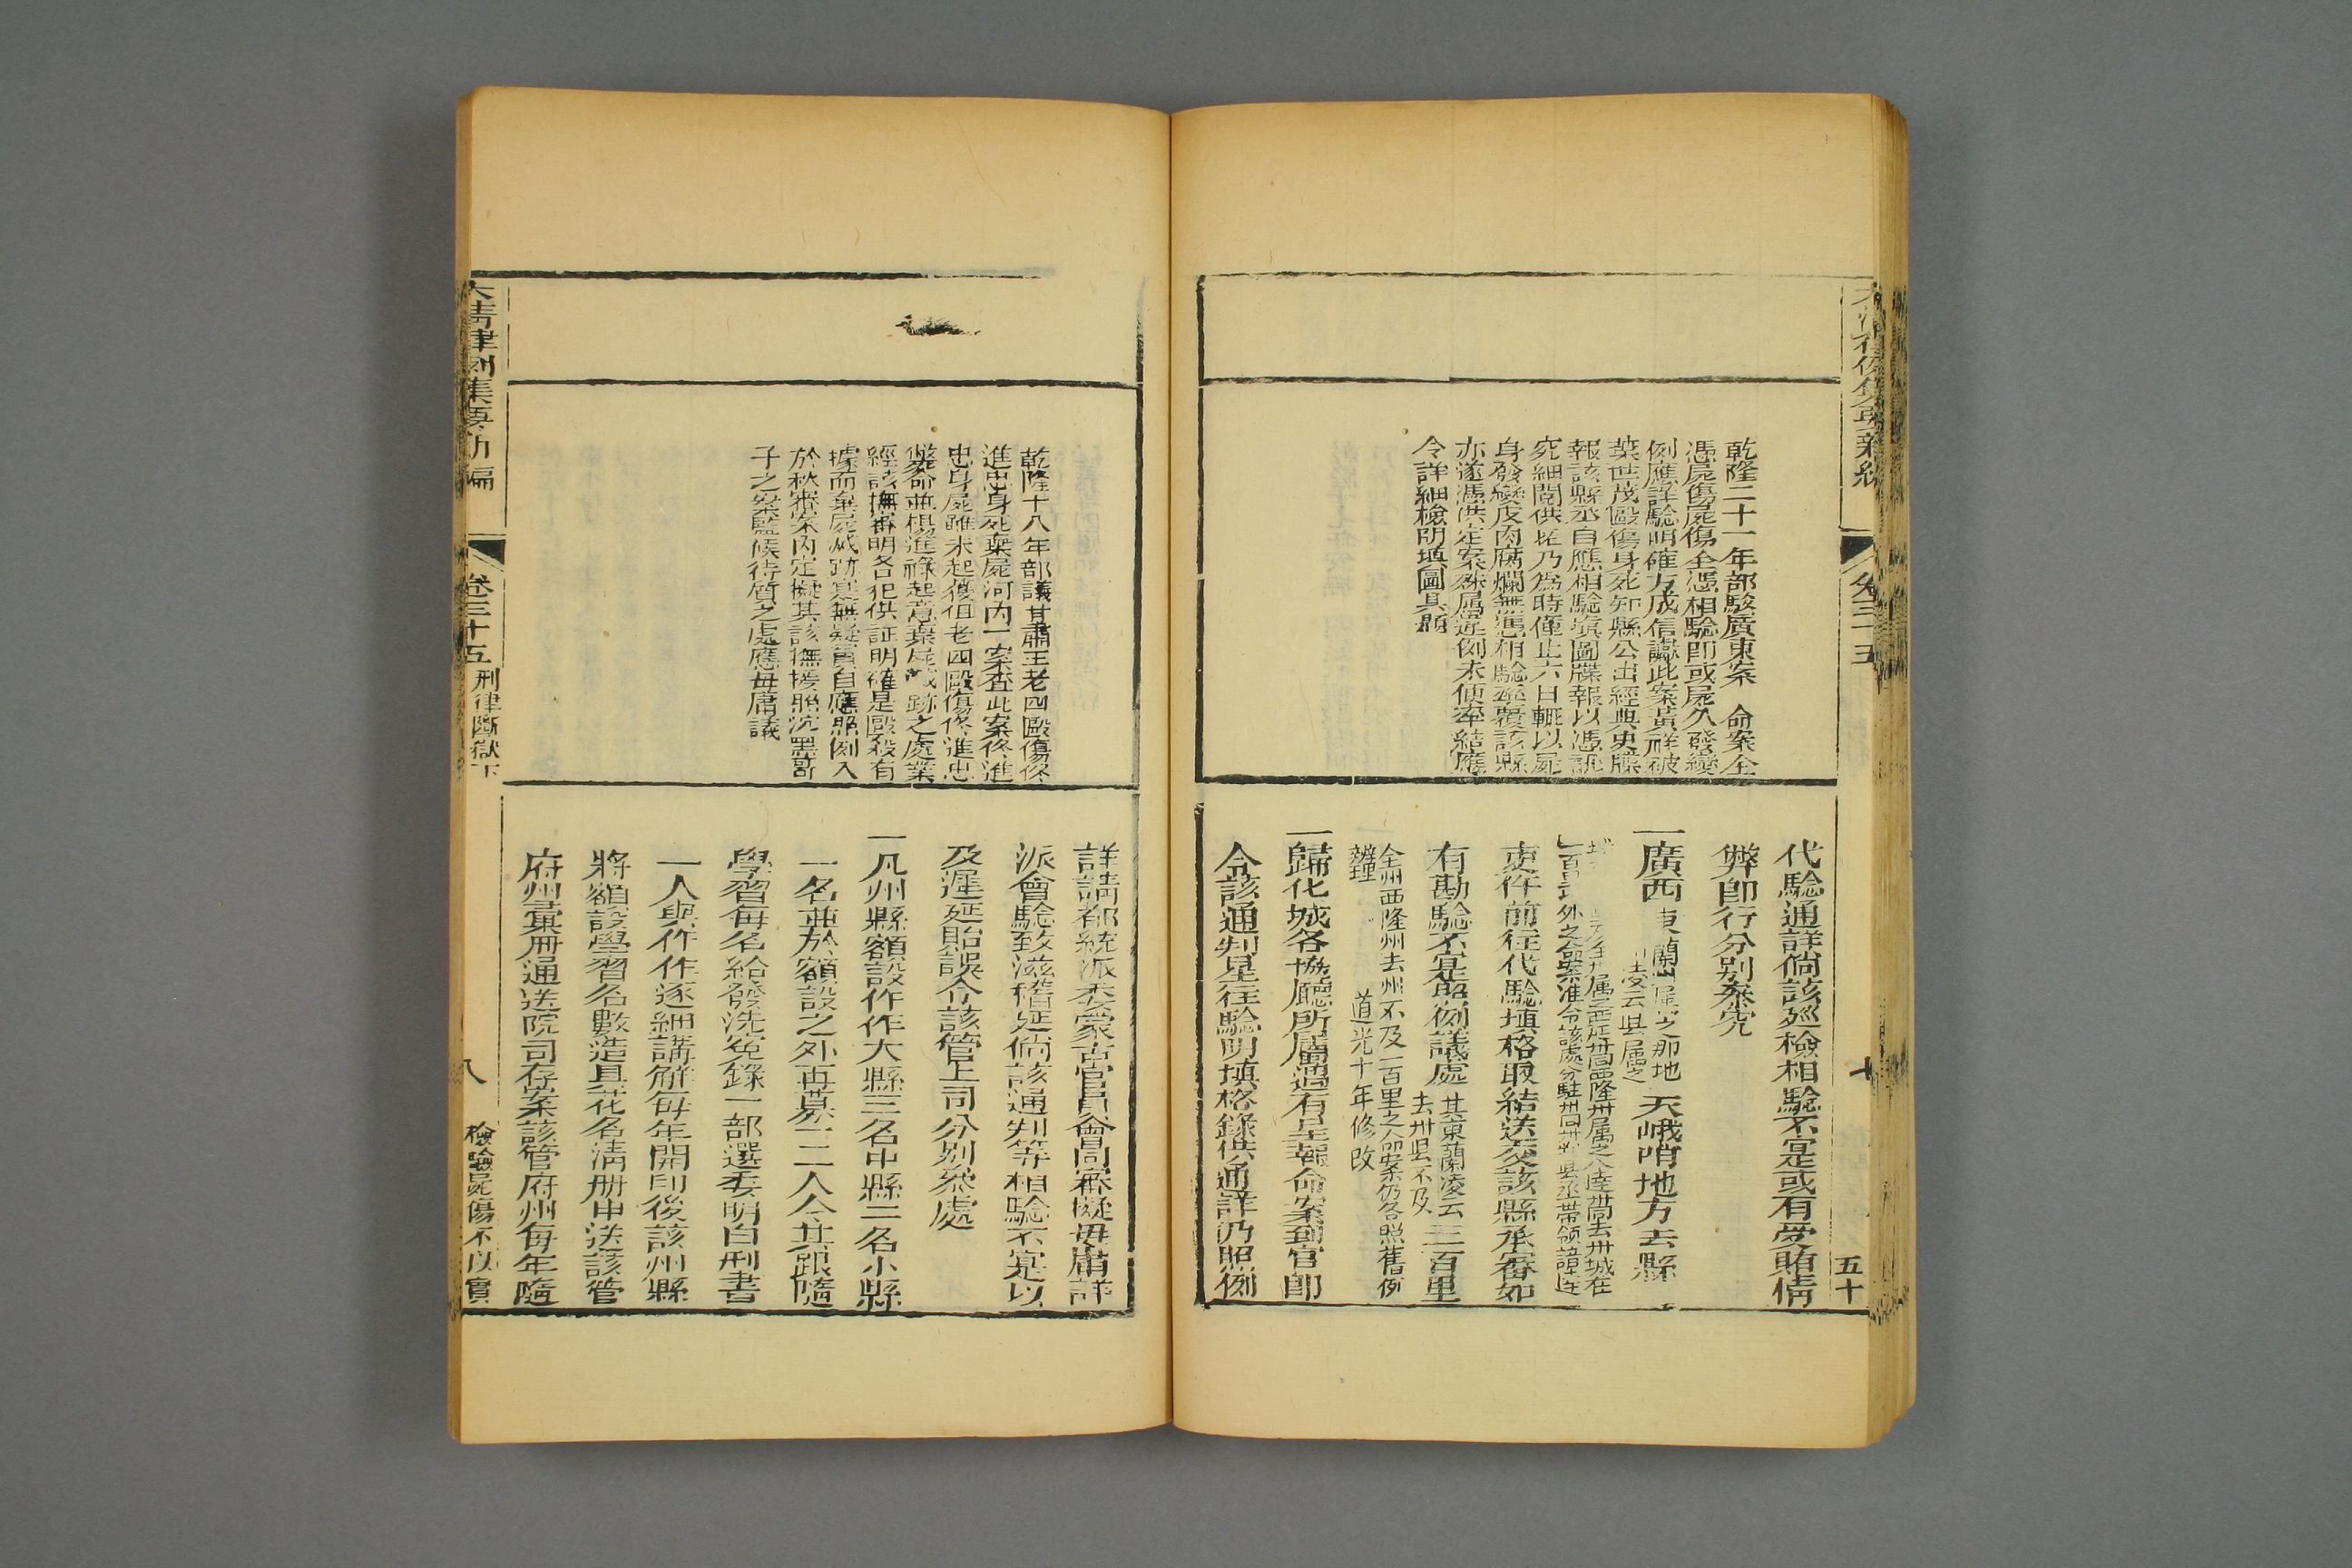 乾隆二十一年部駁廣東案 命案全
憑屍傷屍傷全憑相驗即或屍久發變
例應詳驗明確方成信讞此案黃祥被
葉世茂毆傷身死知縣公出經典史牒
報該縣丞自應相驗填圖牒報以憑訊
究細閱供招乃為時僅止六日輒以屍
身發變皮肉腐爛無憑相驗率覆該縣
亦遂憑供定案殊屬違例未便率結應
令詳細檢明填圖具題
代驗通詳倘該廵檢相驗不寔或有受賄情
弊即行分别叅究
一廣西東蘭州屬之那地 天峨哨地方去縣
外之命案准令該處分駐州同州判县丞帯領諳連
吏仵前往代驗填格取結送交該縣承審如
有勘驗不寔照例議處 其東蘭凌云 去州县不及 三百里
全州西隆州去州不及一百里之命案仍各照舊例
辦理 道光十年修改
一歸化城各協廳所屬遇有呈報命案到官即
令該通判星往驗明填格錄供通詳仍照例
五十
大清律例集要新編
卷三十五
乾隆十八年部議甘肅王老四毆傷佟
進忠身死棄屍河内一案查此案佟進
忠身屍雖未起獲但老四毆傷佟進忠
斃命並楊進祿起意棄屍滅跡之處業
經該撫審明各犯供証明確是毆殺有
據而棄屍滅跡寔無疑竇自應照例入
於秋審案内定擬其該撫援照沉黑哥
子之案監候待質之處應毋庸議
詳請都統派委蒙古官員會同審擬毋庸詳
派會驗致滋稽延倘該通判等相驗不寔以
及遲延貽誤令該管上司分别叅處
一凡州縣額設仵作大縣三名中縣二名小縣
一名並於額設之外再募一二人令其跟隨
學習每名給發洗寃錄一部選委明白刑書
一人與仵作逐細講解每年開印後該州縣
將額設學習名數造具花名清册申送該管
府州彙册通送院司存案該管府州每年隨
大清律例集要新編
卷三十五
刑律斷獄下
八
檢驗屍傷不以實